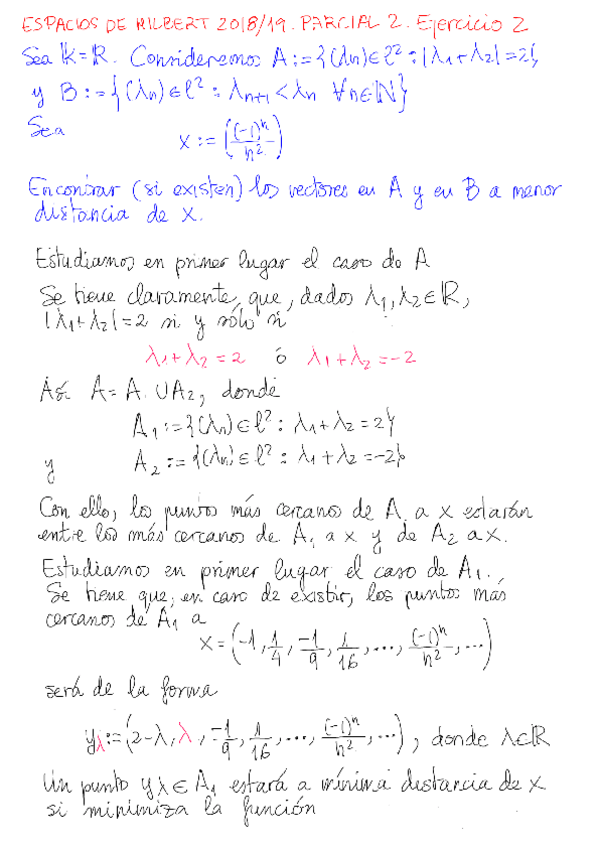 ESPACIOS DE HILBERT 2018/19. PARCIAL 2. Ejercicio 2
Sea 𝕂=ℝ. Consideremos A:={(λn)∈ℓ²: |λ1+λ2|=2},
y B:={(λn)∈ℓ²: λn+1<λn ∀n∈ℕ}
Sea
x:=((-1)^n/n²)
Encontrar (si existen) los vectores en A y en B a menor
distancia de x.
Estudiamos en primer lugar el caso de A
Se tiene claramente, que, dados λ1,λ2∈ℝ,
|λ1+λ2|=2 si y sólo si
λ1+λ2=2 ó λ1+λ2=-2
Así A=A1∪A2, donde
A1:={(λn)∈ℓ²: λ1+λ2=2}
y A2:={(λn)∈ℓ²: λ1+λ2=-2}
Con ello, los puntos más cercanos de A a x estarán
entre los más cercanos de A1 a x y de A2 a x.
Estudiamos en primer lugar el caso de A1.
Se tiene que, en caso de existir, los puntos más
cercanos de A1 a
x=(-1, 1/4, -1/9, 1/16, ..., (-1)^n/n², ...)
será de la forma
yλ:=(2-λ, λ, -1/9, 1/16, ..., (-1)^n/n², ...), donde λ∈ℝ
Un punto yλ∈A1 estará a mínima distancia de x
si minimiza la función